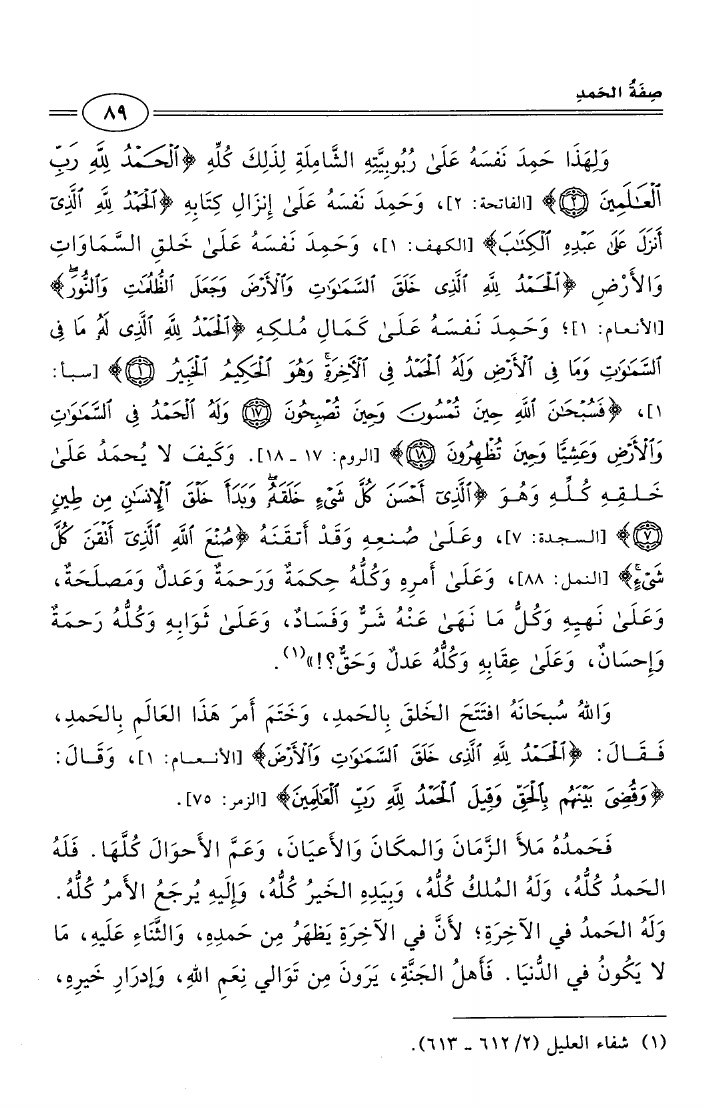 صِفَةُ الحَمدِ
٨٩
وَلِهَذَا حَمِدَ نَفسَهُ عَلَىٰ رُبُوبِيَّتِهِ الشَّامِلَةِ لِذَلِكَ كُلِّهِ ﴿ٱلۡحَمۡدُ لِلَّهِ رَبِّ
ٱلۡعَٰلَمِينَ ۝٢﴾ [الفاتحة: ٢]، وَحَمِدَ نَفسَهُ عَلَىٰ إِنزَالِ كِتَابِهِ ﴿ٱلۡحَمۡدُ لِلَّهِ ٱلَّذِيٓ
أَنزَلَ عَلَىٰ عَبۡدِهِ ٱلۡكِتَٰبَ﴾ [الكهف: ١]، وَحَمِدَ نَفسَهُ عَلَىٰ خَلقِ السَّمَاوَاتِ
وَالأَرْضِ ﴿ٱلۡحَمۡدُ لِلَّهِ ٱلَّذِي خَلَقَ ٱلسَّمَٰوَٰتِ وَٱلۡأَرۡضَ وَجَعَلَ ٱلظُّلُمَٰتِ وَٱلنُّورَۖ﴾
[الأنعام: ١]؛ وَحَمِدَ نَفسَهُ عَلَىٰ كَمَالِ مُلكِهِ ﴿ٱلۡحَمۡدُ لِلَّهِ ٱلَّذِي لَهُۥ مَا فِي
ٱلسَّمَٰوَٰتِ وَمَا فِي ٱلۡأَرۡضِ وَلَهُ ٱلۡحَمۡدُ فِي ٱلۡأٓخِرَةِۚ وَهُوَ ٱلۡحَكِيمُ ٱلۡخَبِيرُ ۝١﴾ [سبأ:
١]، ﴿فَسُبۡحَٰنَ ٱللَّهِ حِينَ تُمۡسُونَ وَحِينَ تُصۡبِحُونَ ۝١٧ وَلَهُ ٱلۡحَمۡدُ فِي ٱلسَّمَٰوَٰتِ
وَٱلۡأَرۡضِ وَعَشِيّٗا وَحِينَ تُظۡهِرُونَ ۝١٨﴾ [الروم: ١٧ - ١٨]. وَكَيفَ لَا يُحمَدُ عَلَىٰ
خَلقِهِ كُلِّهِ وَهُوَ ﴿ٱلَّذِيٓ أَحۡسَنَ كُلَّ شَيۡءٍ خَلَقَهُۥۖ وَبَدَأَ خَلۡقَ ٱلۡإِنسَٰنِ مِن طِينٖ
۝٧﴾ [السجدة: ٧]، وعَلَىٰ صُنعِهِ وَقَدْ أَتقَنَهُ ﴿صُنۡعَ ٱللَّهِ ٱلَّذِيٓ أَتۡقَنَ كُلَّ
شَيۡءٍۚ﴾ [النمل: ٨٨]، وَعَلَىٰ أَمرِهِ وَكُلُّهُ حِكمَةٌ وَرَحمَةٌ وَعَدلٌ وَمَصلَحَةٌ،
وَعَلَىٰ نَهيِهِ وَكُلُّ مَا نَهَىٰ عَنْهُ شَرٌّ وَفَسَادٌ، وَعَلَىٰ ثَوَابِهِ وَكُلُّهُ رَحمَةٌ
وَإِحسَانٌ، وَعَلَىٰ عِقَابِهِ وَكُلُّهُ عَدلٌ وَحَقٌّ؟!»(١).
وَاللهُ سُبحَانَهُ افتَتَحَ الخَلقَ بِالحَمدِ، وَخَتَمَ أَمرَ هَذَا العَالَمِ بِالحَمدِ،
فَقَالَ: ﴿ٱلۡحَمۡدُ لِلَّهِ ٱلَّذِي خَلَقَ ٱلسَّمَٰوَٰتِ وَٱلۡأَرۡضَ﴾ [الأنعام: ١]، وَقَالَ:
﴿وَقُضِيَ بَيۡنَهُم بِٱلۡحَقِّ وَقِيلَ ٱلۡحَمۡدُ لِلَّهِ رَبِّ ٱلۡعَٰلَمِينَ﴾ [الزمر: ٧٥].
فَحَمدُهُ مَلأَ الزَّمَانَ وَالمَكَانَ وَالأَعيَانَ، وَعَمَّ الأَحوَالَ كُلَّهَا. فَلَهُ
الحَمدُ كُلُّهُ، وَلَهُ المُلكُ كُلُّهُ، وَبِيَدِهِ الخَيرُ كُلُّهُ، وَإِلَيهِ يُرجَعُ الأَمرُ كُلُّهُ.
وَلَهُ الحَمدُ في الآخِرَةِ؛ لأَنَّ في الآخِرَةِ يَظهَرُ مِن حَمدِهِ، وَالثَّنَاءِ عَلَيهِ، مَا
لا يَكُونُ في الدُّنيَا. فَأَهلُ الجَنَّةِ، يَرَونَ مِن تَوَالي نِعَمِ اللهِ، وَإِدرَارِ خَيرِهِ،
(١) شفاء العليل (٢/ ٦١٢ - ٦١٣).